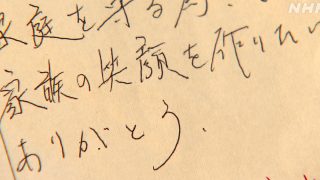 家庭を守る為、
家族の笑顔を作りたい
ありがとう.
NHK